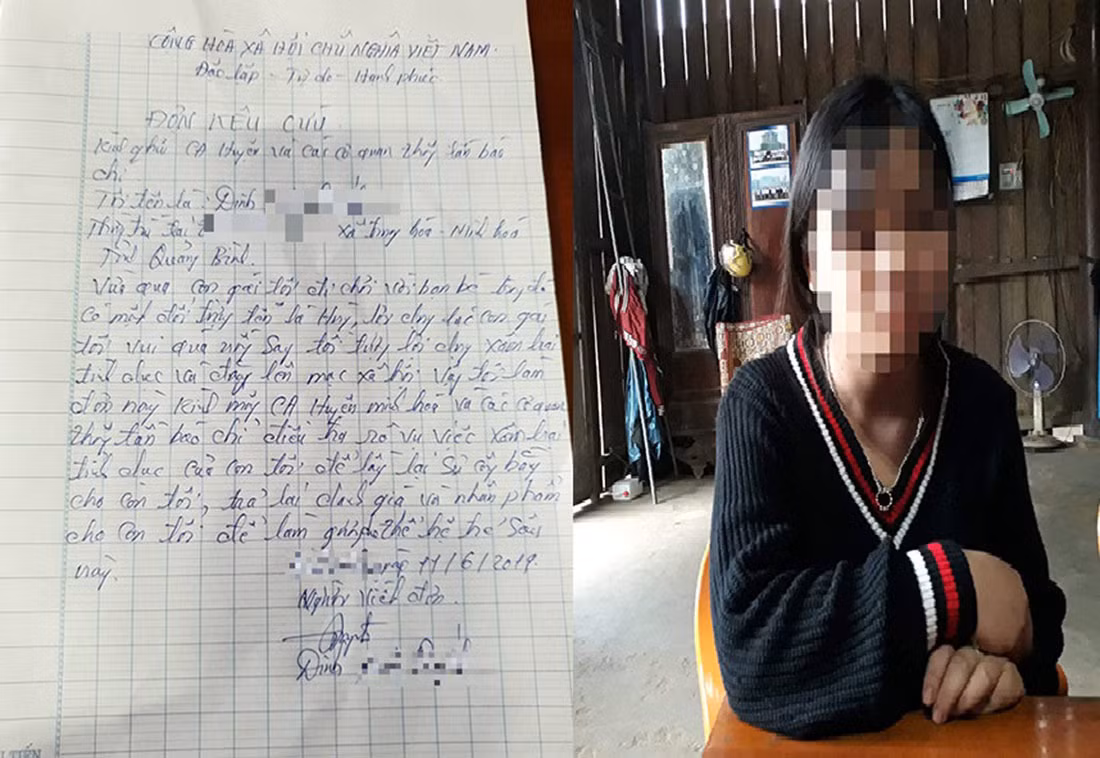 CÔNG HOÀ XÃ HỘI CHỦ NGHĨA VIỆT NAM.
Độc lập - Tự do - Hạnh phúc
ĐƠN KÊU CỨU.
Kính gửi CA Huyện và các cơ quan thông tấn báo
chí
Tôi tên là: Đinh
Thường trú tại xã Trung hóa - Minh hoá
Tỉnh Quảng Bình.
Vừa qua con gái tôi đi chơi với bạn bè trong đó
có một đối tượng tên là Huy, lợi dụng lúc con gái
tôi vui quá uống say tội tượng lợi dụng xâm hại
tình dục và đăng lên mạc xã hội vậy tôi làm
đơn này Kính mong CA Huyện minh hoá và các cơ quan
thông tấn báo chí điều tra rõ vụ việc xâm hại
tình dục của con tôi để lấy lại sự công bằng
cho con tôi, trả lại danh giá và nhân phẩm
cho con tôi để làm gương thế hệ trẻ sau
này.
ngày 11/6/2019.
Người viết đơn.
Đinh